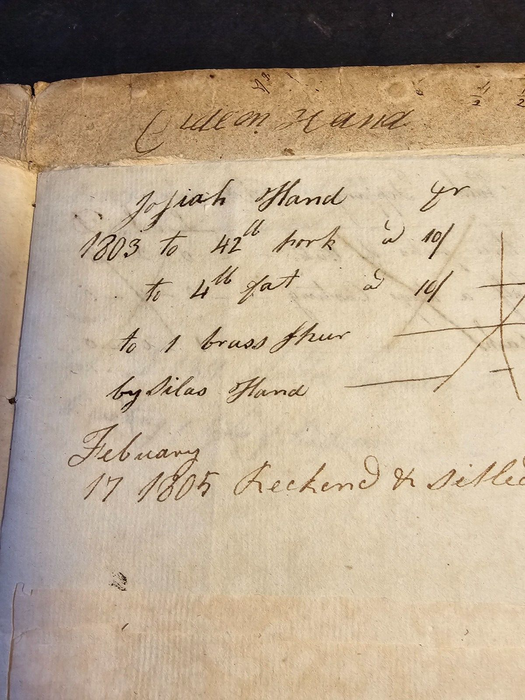 Gideon Hand
Josiah Hand Dr
1803 to 42 lb pork @ 10/
to 4 lb fat @ 10/
to 1 brass
by Silas Hand
Febuary
17 1805 Reckend & Sitled